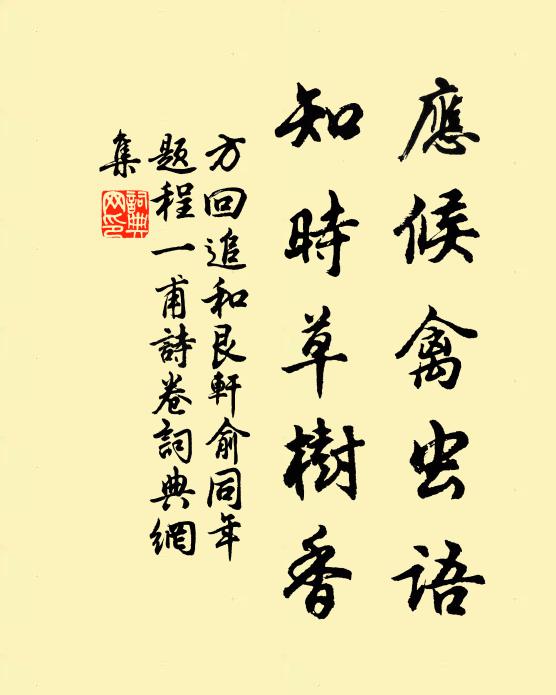 應候禽虫語
知時草樹香
方回追和艮軒俞同年
題程一甫詩卷詞典網
集
詞典網印